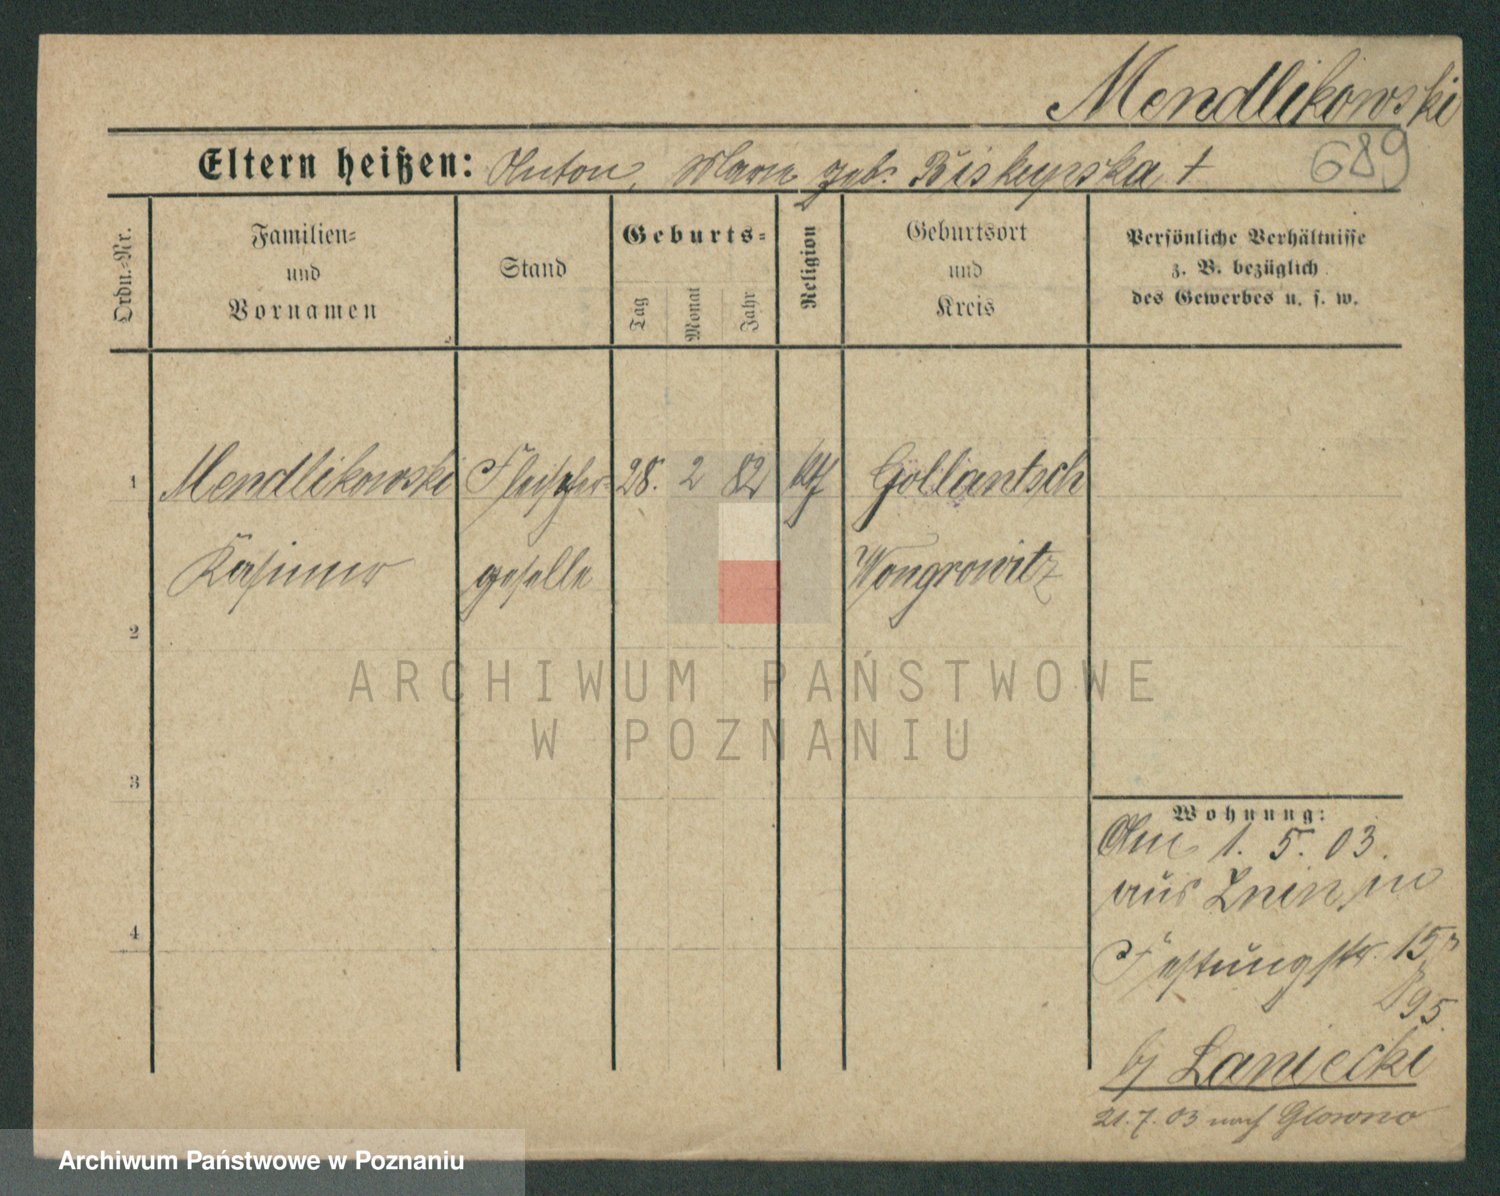 Mendlikowski
689
Eltern heißen: Anton, Marie geb. Biskupska †
Ordn.-Nr.
Familien-
und
Vornamen
Stand
Geburts-
Tag
Monat
Jahr
Religion
Geburtsort
und
Kreis
Persönliche Verhältnisse
z. B. bezüglich
des Gewerbes u. s. w.
1 Mendlikowski Fleischer- 28. 2 82 kth Gollantsch
Kasimir geselle Wongrowitz
2
3
4
ARCHIWUM PAŃSTWOWE
W POZNANIU
Wohnung:
Am 1. 5. 03.
aus Znin in
Festungstr. 15
95.
bj Laniecki
21.7.03 nach Glowno
Archiwum Państwowe w Poznaniu